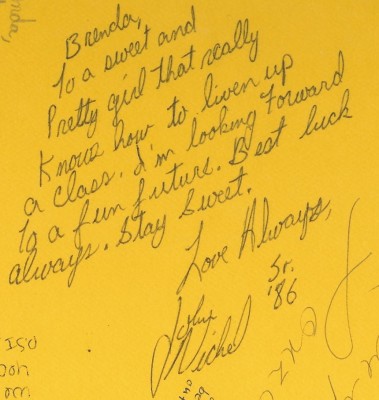 Brenda,
To a sweet and
Pretty girl that really
Knows how to liven up
a class. I'm looking Forward
To a fun future. Best luck
always. Stay Sweet.
Love Always,
John
Michel
Sr.
'86